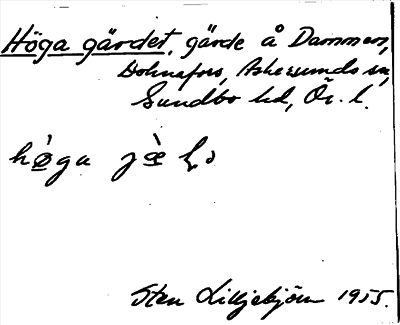 Höga gärdet, gärde å Dammen,
Dohnafors, Askersunds sn,
Sundbo hd, Ör. l.
hø̀ga
Sten Liljebjörn 1955.